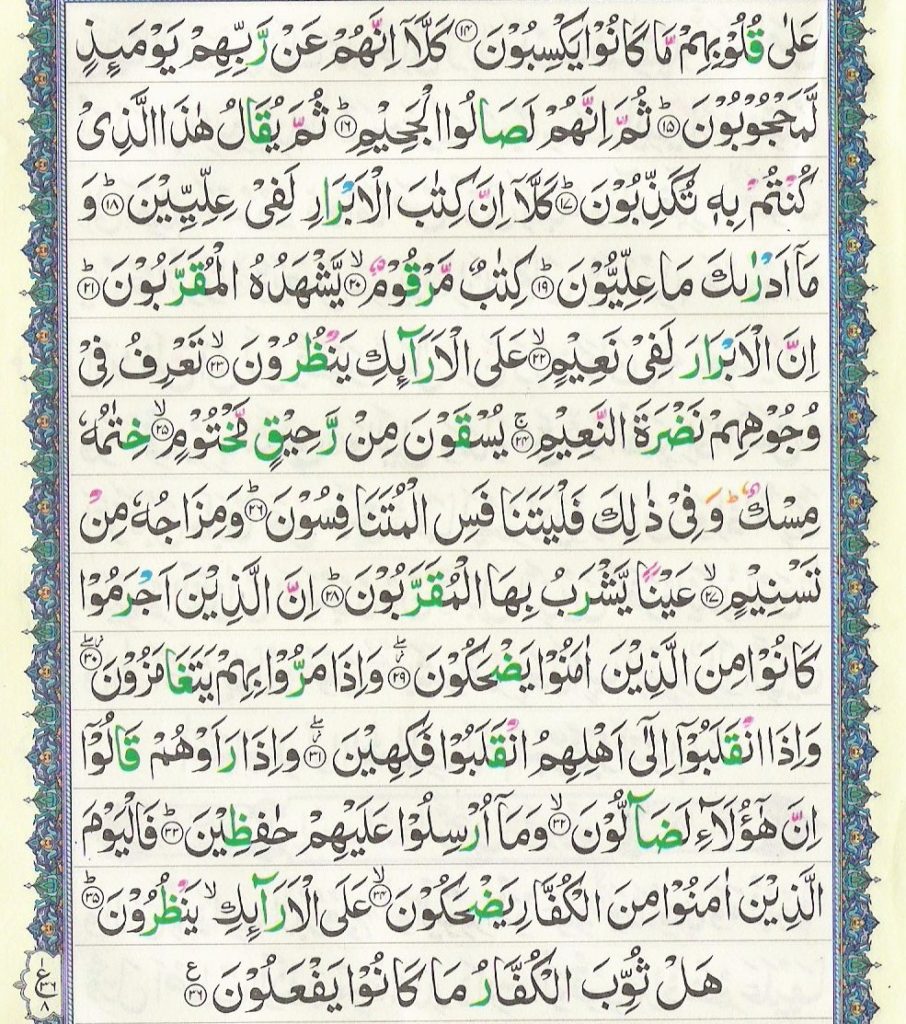 عَلٰى قُلُوْبِهِمْ مَّا كَانُوْا يَكْسِبُوْنَ ۝۱۴ كَلَّاۤ اِنَّهُمْ عَنْ رَّبِّهِمْ يَوْمَىِٕذٍ
لَّمَحْجُوْبُوْنَ ؕ۝۱۵ ثُمَّ اِنَّهُمْ لَصَالُوا الْجَحِيْمِ ؕ۝۱۶ ثُمَّ يُقَالُ هٰذَا الَّذِىْ
كُنْتُمْ بِهٖ تُكَذِّبُوْنَ ؕ۝۱۷ كَلَّاۤ اِنَّ كِتٰبَ الْاَبْرَارِ لَفِىْ عِلِّيِّيْنَ ؕ۝۱۸ وَ
مَاۤ اَدْرٰىكَ مَا عِلِّيُّوْنَ ؕ۝۱۹ كِتٰبٌ مَّرْقُوْمٌ ۙ۝۲۰ يَّشْهَدُهُ الْمُقَرَّبُوْنَ ؕ۝۲۱
اِنَّ الْاَبْرَارَ لَفِىْ نَعِيْمٍ ۙ۝۲۲ عَلَى الْاَرَآىِٕكِ يَنْظُرُوْنَ ۙ۝۲۳ تَعْرِفُ فِىْ
وُجُوْهِهِمْ نَضْرَةَ النَّعِيْمِ ۚ۝۲۴ يُسْقَوْنَ مِنْ رَّحِيْقٍ مَّخْتُوْمٍ ۙ۝۲۵ خِتٰمُهٗ
مِسْكٌ ؕ وَ فِىْ ذٰلِكَ فَلْيَتَنَافَسِ الْمُتَنَافِسُوْنَ ؕ۝۲۶ وَمِزَاجُهٗ مِنْ
تَسْنِيْمٍ ۙ۝۲۷ عَيْنًا يَّشْرَبُ بِهَا الْمُقَرَّبُوْنَ ؕ۝۲۸ اِنَّ الَّذِيْنَ اَجْرَمُوْا
كَانُوْا مِنَ الَّذِيْنَ اٰمَنُوْا يَضْحَكُوْنَ ۝۲۹ وَاِذَا مَرُّوْا بِهِمْ يَتَغَامَزُوْنَ ۝۳۰
وَاِذَا انْقَلَبُوْۤا اِلٰٓى اَهْلِهِمُ انْقَلَبُوْا فَكِهِيْنَ ۝۳۱ وَاِذَا رَاَوْهُمْ قَالُوْۤا
اِنَّ هٰٓؤُلَآءِ لَضَآلُّوْنَ ۙ۝۳۲ وَمَاۤ اُرْسِلُوْا عَلَيْهِمْ حٰفِظِيْنَ ؕ۝۳۳ فَالْيَوْمَ
الَّذِيْنَ اٰمَنُوْا مِنَ الْكُفَّارِ يَضْحَكُوْنَ ۙ۝۳۴ عَلَى الْاَرَآىِٕكِ ۙ يَنْظُرُوْنَ ؕ۝۳۵
هَلْ ثُوِّبَ الْكُفَّارُ مَا كَانُوْا يَفْعَلُوْنَ ۝۳۶ ع
ع ۳۶ ۸